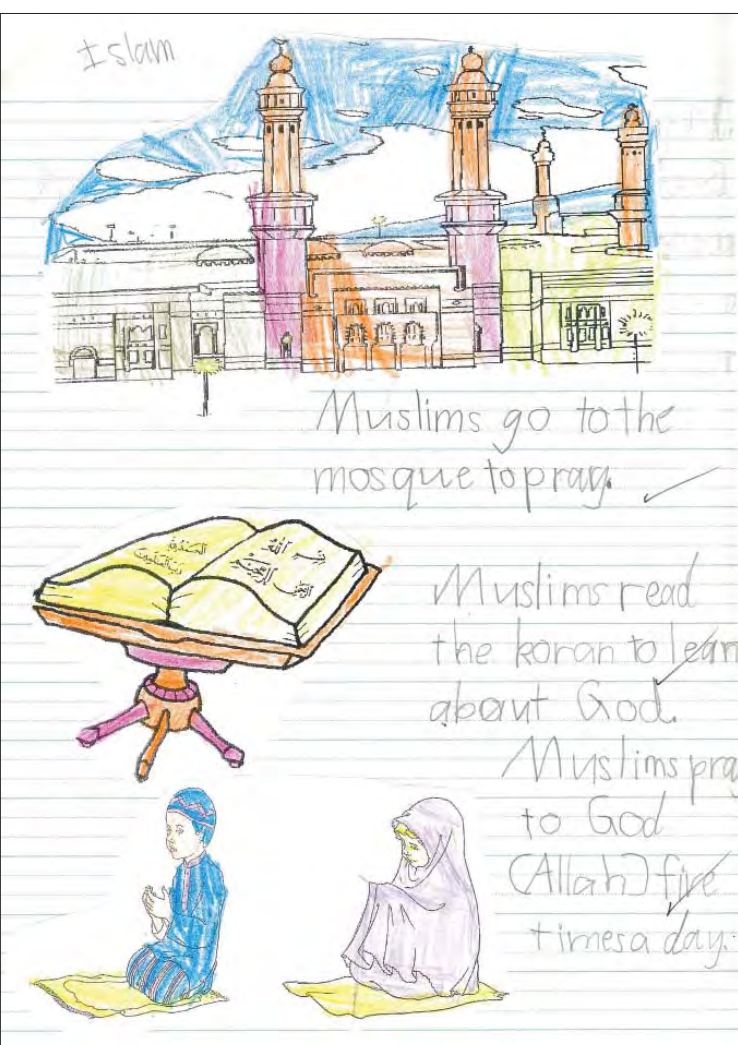 Islam
Muslims go to the
mosque to pray.
بسم الله
الرحمن الرحيم
Muslims read
the koran to learn
about God.
Muslims pra
to God
(Allah) five
times a day.